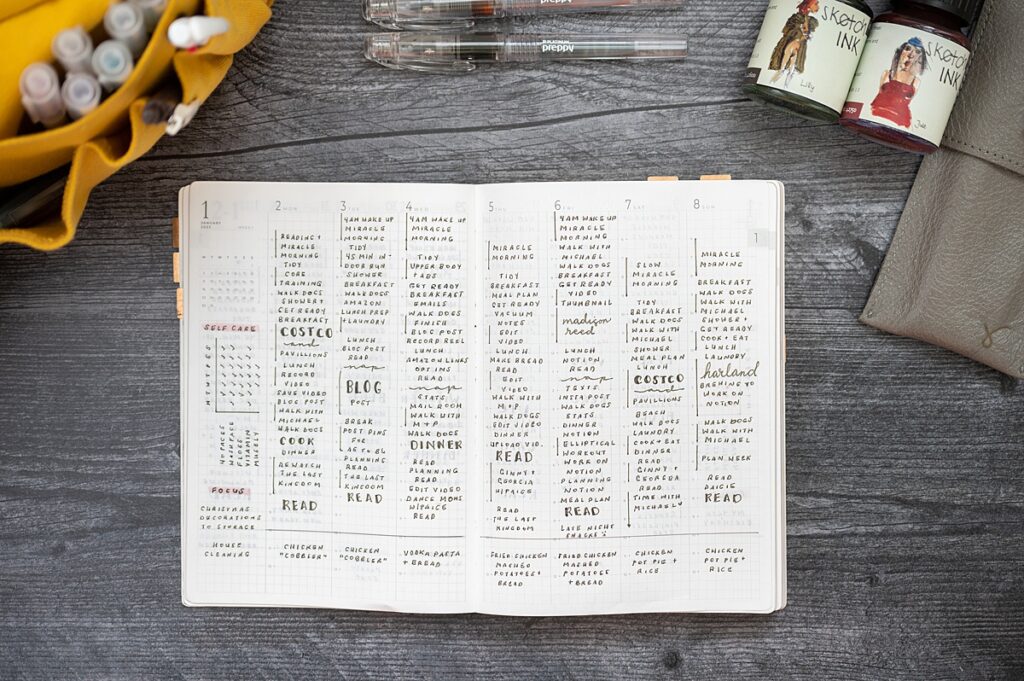 PLATINUM preppy
preppy
sketch
INK
Lily
sketch
INK
Jule
1
JANUARY
SELF CARE
M T W T F S S
FLOSS
VITAMIN
FOCUS
CHRISTMAS
DECORATIONS
TO STORAGE
HOUSE
CLEANING
2 MON
READING +
MIRACLE
MORNING
TIDY
CORE
TRAINING
WALK DOGS
SHOWER +
GET READY
BREAKFAST
COSTCO
and
PAVILLIONS
LUNCH
RECORD
VIDEO
SAVE VIDEO
BLOG POST
WALK WITH
MICHAEL
WALK DOGS
COOK
DINNER
REWATCH
THE LAST
KINGDOM
READ
CHICKEN
"COBBLER"
3 TUE
4AM WAKE UP
MIRACLE
MORNING
TIDY
45 MIN IN-
DOOR RUN
SHOWER
BREAKFAST
WALK DOGS
AMAZON
LUNCH PREP
+ LAUNDRY
LUNCH
BLOG POST
READ
nap
BLOG
POST
BREAK
POST PINS
PLANNING
READ
THE LAST
KINGDOM
READ
CHICKEN
"COBBLER"
4 WED
4AM WAKE UP
MIRACLE
MORNING
TIDY
UPPER BODY
+ ABS
GET READY
BREAKFAST
EMAILS
WALK DOGS
FINISH
BLOG POST
RECORD REEL
LUNCH
AMAZON LINKS
OPT INS
READ
nap
STATS
MAIL ROOM
WALK WITH
M + P
WALK DOGS
DINNER
READ
PLANNING
READ
EDIT VIDEO
DANCE MOMS
W/PAIGE
READ
VODKA PASTA
+ BREAD
5 THU
MIRACLE
MORNING
TIDY
BREAKFAST
MEAL PLAN
GET READY
VACUUM
NOTES
EDIT
VIDEO
LUNCH
MAKE BREAD
READ
EDIT
VIDEO
WALK WITH
M + P
WALK DOGS
EDIT VIDEO
DINNER
UPLOAD VID.
READ
GINNY +
GEORGIA
W/PAIGE
READ
THE LAST
KINGDOM
FRIED CHICKEN
MASHED
POTATOES +
BREAD
6 FRI
4AM WAKE UP
MIRACLE
MORNING
WALK WITH
MICHAEL
WALK DOGS
BREAKFAST
GET READY
VIDEO
THUMBNAIL
madison
reed
LUNCH
NOTION
READ
nap
TEXTS
INSTA POST
WALK DOGS
STATS
DINNER
NOTION
ELLIPTICAL
WORKOUT
WORK ON
NOTION
PLANNING
NOTION
MEAL PLAN
READ
LATE NIGHT
SNACKS
FRIED CHICKEN
MASHED
POTATOES
+ BREAD
7 SAT
SLOW
MIRACLE
MORNING
TIDY
BREAKFAST
WALK DOGS
WALK WITH
MICHAEL
SHOWER
MEAL PLAN
LUNCH
COSTCO
and
PAVILLIONS
BEACH
WALK DOGS
LAUNDRY
COOK + EAT
DINNER
READ
GINNY +
GEORGIA
READ
TIME WITH
MICHAEL
CHICKEN
POT PIE +
RICE
8 SUN
MIRACLE
MORNING
BREAKFAST
WALK DOGS
WALK WITH
MICHAEL
SHOWER +
GET READY
COOK + EAT
LUNCH
LAUNDRY
harland
BREWING TO
WORK ON
NOTION
WALK DOGS
WALK WITH
MICHAEL
PLAN WEEK
READ
READ
CHICKEN
POT PIE +
RICE
1